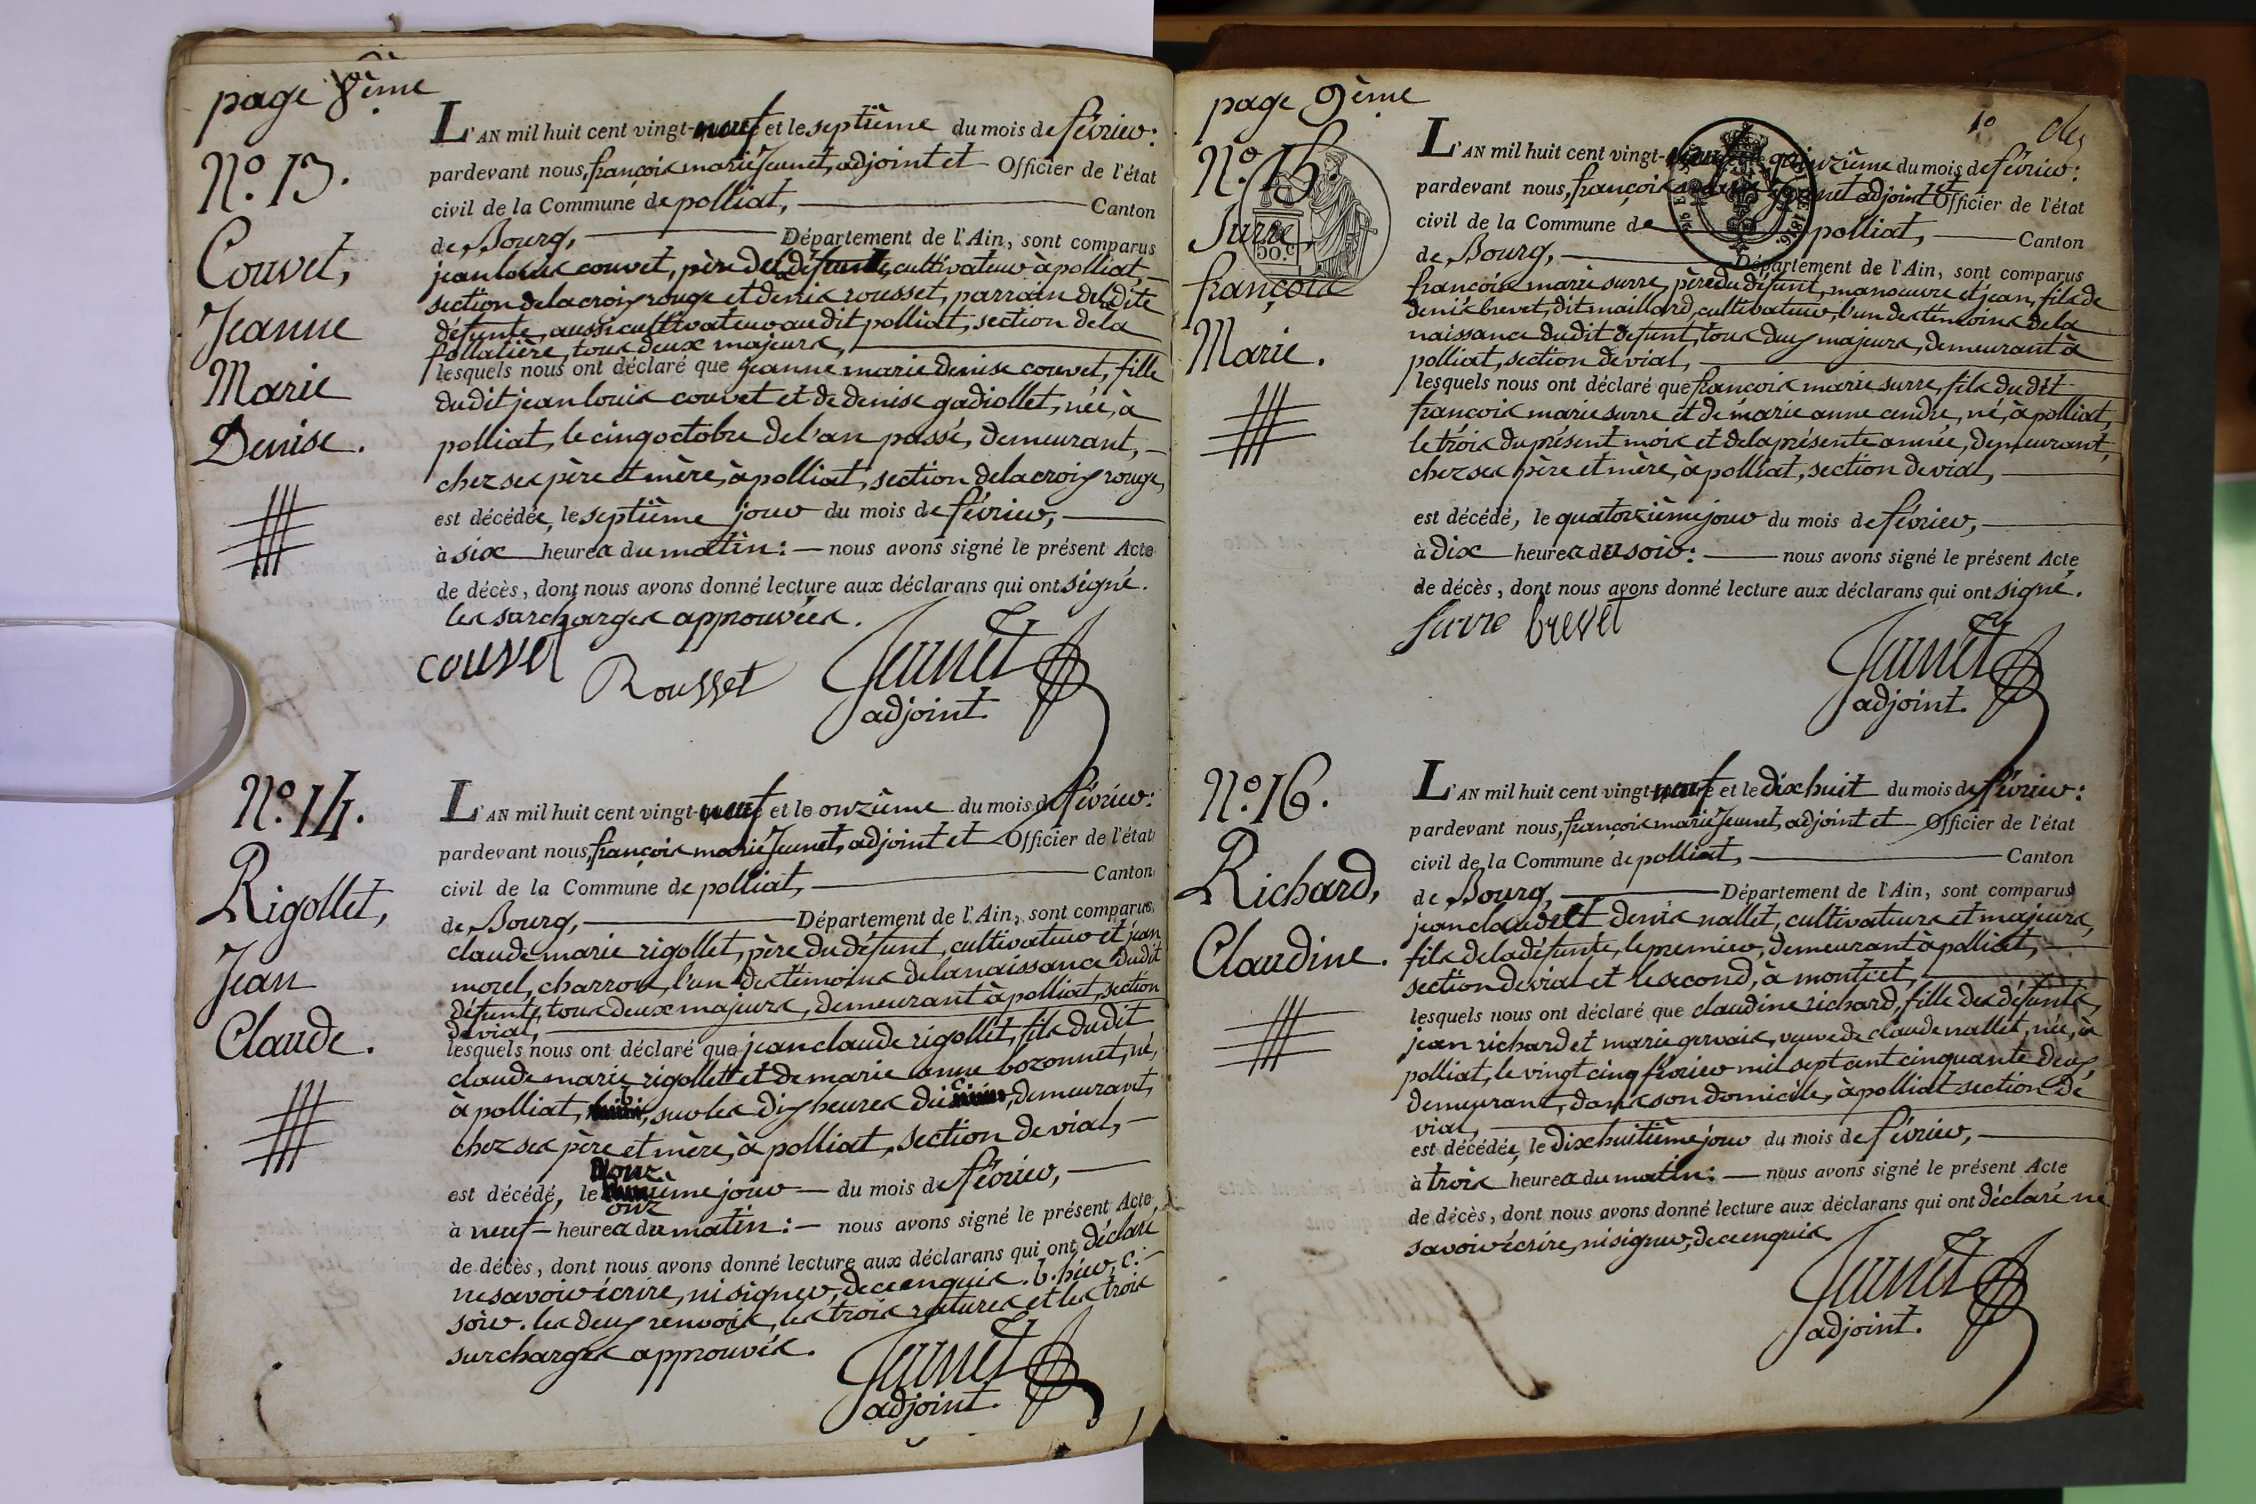 page 8ème
N.º 13.
Couvet,
Jeanne
Marie
Denise.
L'AN mil huit cent vingt-neuf et le septième du mois de février:
pardevant nous, françois marie Jeunet, adjoint et Officier de l'état
civil de la Commune de polliat, Canton
de Bourg, Département de l'Ain, sont comparus
jean louis couvet, père de la défunte, cultivateur à polliat,
section de la croix rouge et denis rousset, parrain de ladite
défunte, aussi cultivateur audit polliat, section de la
follatière, tous deux majeurs,
lesquels nous ont déclaré que Jeanne marie denise couvet, fille
dudit jean louis couvet et de denise gadiollet, née, à
polliat, le cinq octobre de l'an passé, demeurant,
chez ses père et mère, à polliat, section de la croix rouge,
est décédée, le septième jour du mois de février,
à six heures du matin: nous avons signé le présent Acte
de décès, dont nous avons donné lecture aux déclarans qui ont signé.
les surcharges approuvées.
couvet Rousset Jeunet
adjoint.
N.º 14.
Rigollet,
Jean
Claude.
L'AN mil huit cent vingt-neuf et le onzième du mois de février:
pardevant nous, françois marie Jeunet, adjoint et Officier de l'état
civil de la Commune de polliat, Canton
de Bourg, Département de l'Ain, sont comparus
claude marie rigollet, père du défunt, cultivateur et jean
morel, charron, l'un des témoins de la naissance dudit
défunt, tous deux majeurs, demeurant à polliat, section
de vial,
lesquels nous ont déclaré que jean claude rigollet, fils dudit
claude marie rigollet et de marie anne bozonnet, né,
à polliat, b. sur les dix heures du c. demeurant,
chez ses père et mère, à polliat, section de vial,
onz
est décédé, le ième jour du mois de février,
onz
à neuf heures du matin: nous avons signé le présent Acte
de décès, dont nous avons donné lecture aux déclarans qui ont déclaré
ne savoir écrire, ni signer, de ce enquis. b. hier, c.
soir. les deux renvois, les trois ratures et les trois
surcharges approuvés.
Jeunet
adjoint.
page 9ème
10
N.º 15.
50.c
Surre,
françois
Marie.
L'AN mil huit cent vingt-neuf et le quinzième du mois de février:
pardevant nous, françois marie Jeunet adjoint et Officier de l'état
civil de la Commune de polliat, Canton
de Bourg, Département de l'Ain, sont comparus
françois marie surre, père du défunt, manœuvre et jean, fils de
denis brevet, dit maillard, cultivateur, l'un des témoins de la
naissance dudit défunt, tous deux majeurs, demeurant à
polliat, section de vial,
lesquels nous ont déclaré que françois marie surre, fils dudit
françois marie surre et de marie anne cendre, né, à polliat,
le trois du présent mois et de la présente année, demeurant,
chez ses père et mère, à polliat, section de vial,
est décédé, le quatorzième jour du mois de février,
à dix heures du soir: nous avons signé le présent Acte
de décès, dont nous avons donné lecture aux déclarans qui ont signé.
Surre brevet
Jeunet
adjoint.
N.º 16.
Richard,
Claudine.
L'AN mil huit cent vingt-neuf et le dix huit du mois de février:
pardevant nous, françois marie Jeunet, adjoint et Officier de l'état
civil de la Commune de polliat, Canton
de Bourg, Département de l'Ain, sont comparus
jean claude et denis nallet, cultivateurs et majeurs,
fils de la défunte, le premier, demeurant à polliat,
section de vial et le second, à montcet,
lesquels nous ont déclaré que claudine richard, fille des défunts,
jean richard et marie gervais, veuve de claude nallet, née, à
polliat, le vingt cinq février mil sept cent cinquante deux,
demeurant, dans son domicile, à polliat section de
vial,
est décédée, le dix huitième jour du mois de février,
à trois heures du matin: nous avons signé le présent Acte
de décès, dont nous avons donné lecture aux déclarans qui ont déclaré ne
savoir écrire, ni signer, de ce enquis.
Jeunet
adjoint.